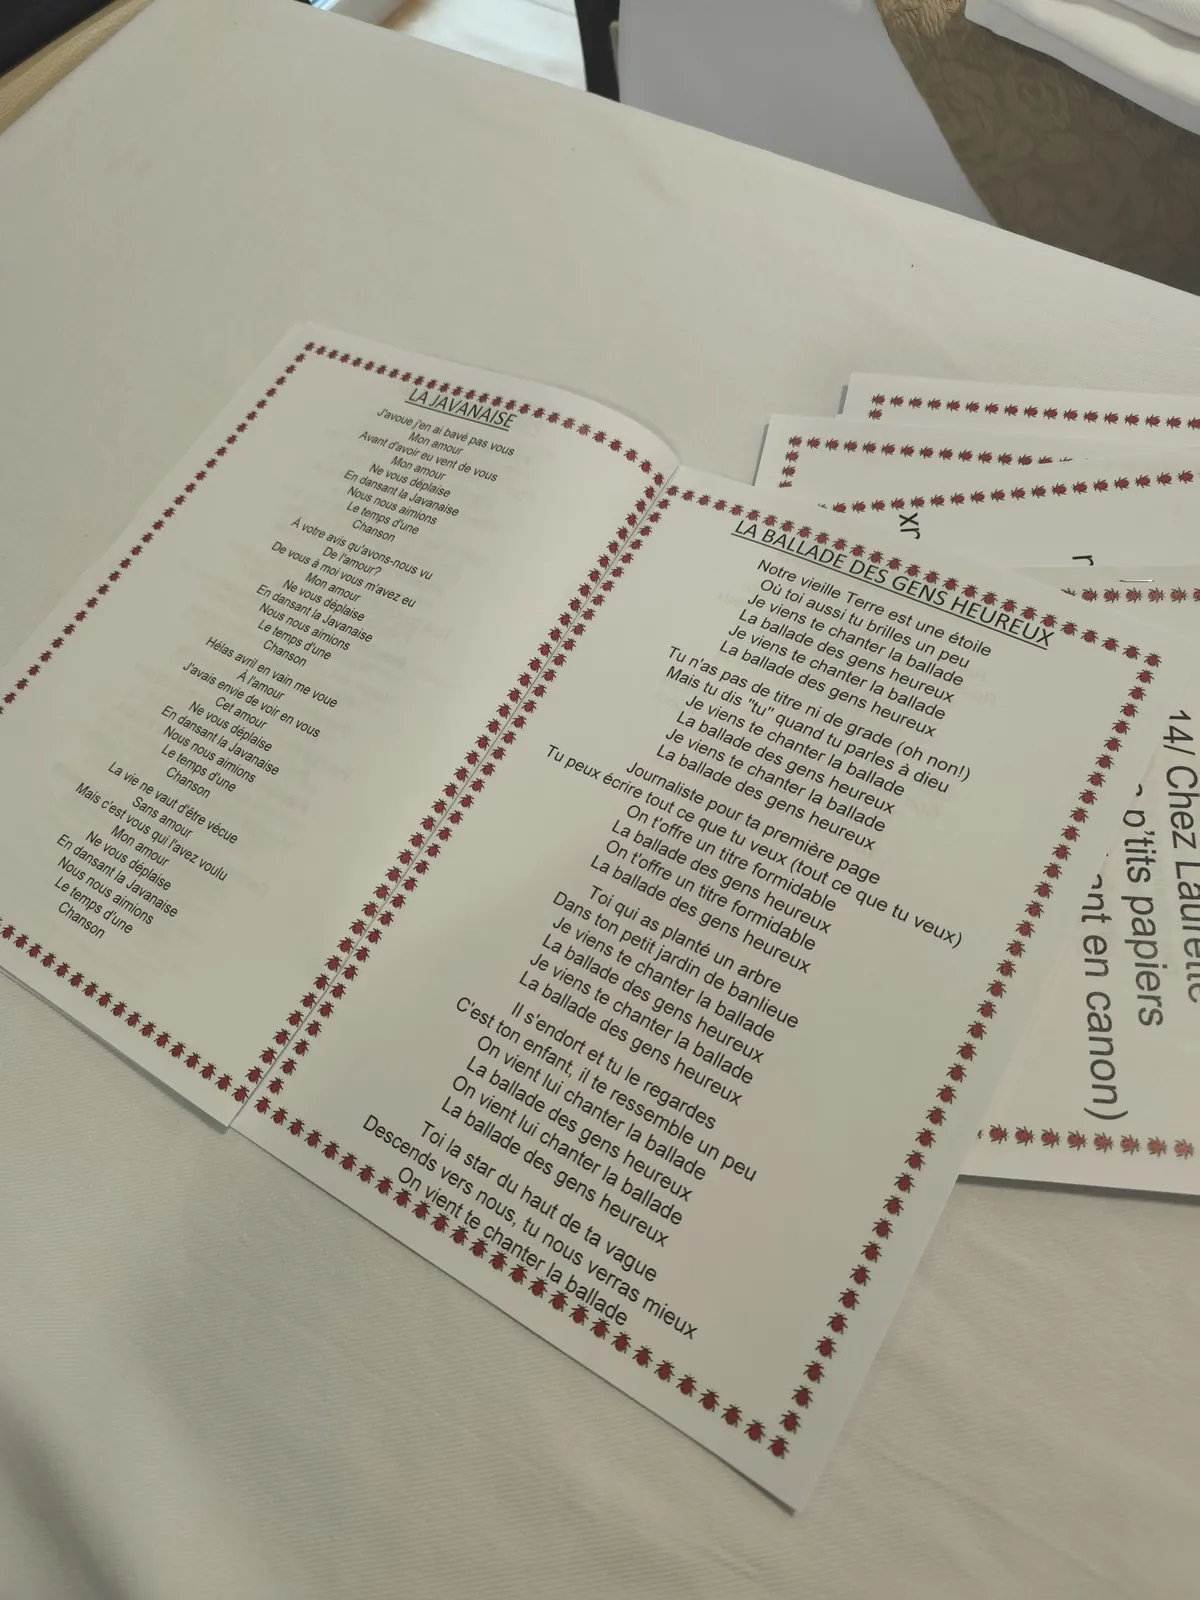 LA JAVANAISE
J'avoue j'en ai bavé pas vous
Mon amour
Avant d'avoir eu vent de vous
Mon amour
Ne vous déplaise
En dansant la Javanaise
Nous nous aimions
Le temps d'une
Chanson
À votre avis qu'avons-nous vu
De l'amour?
De vous à moi vous m'avez eu
Mon amour
Ne vous déplaise
En dansant la Javanaise
Nous nous aimions
Le temps d'une
Chanson
Hélas avril en vain me voue
À l'amour
J'avais envie de voir en vous
Cet amour
Ne vous déplaise
En dansant la Javanaise
Nous nous aimions
Le temps d'une
Chanson
La vie ne vaut d'être vécue
Sans amour
Mais c'est vous qui l'avez voulu
Mon amour
Ne vous déplaise
En dansant la Javanaise
Nous nous aimions
Le temps d'une
Chanson
LA BALLADE DES GENS HEUREUX
Notre vieille Terre est une étoile
Où toi aussi tu brilles un peu
Je viens te chanter la ballade
La ballade des gens heureux
Je viens te chanter la ballade
La ballade des gens heureux
Tu n'as pas de titre ni de grade (oh non!)
Mais tu dis "tu" quand tu parles à dieu
Je viens te chanter la ballade
La ballade des gens heureux
Je viens te chanter la ballade
La ballade des gens heureux
Journaliste pour ta première page
Tu peux écrire tout ce que tu veux (tout ce que tu veux)
On t'offre un titre formidable
La ballade des gens heureux
On t'offre un titre formidable
La ballade des gens heureux
Toi qui as planté un arbre
Dans ton petit jardin de banlieue
Je viens te chanter la ballade
La ballade des gens heureux
Je viens te chanter la ballade
La ballade des gens heureux
Il s'endort et tu le regardes
C'est ton enfant, il te ressemble un peu
On vient lui chanter la ballade
La ballade des gens heureux
On vient lui chanter la ballade
La ballade des gens heureux
Toi la star du haut de ta vague
Descends vers nous, tu nous verras mieux
On vient te chanter la ballade
14/ Chez Laurette
p'tits papiers
en canon)